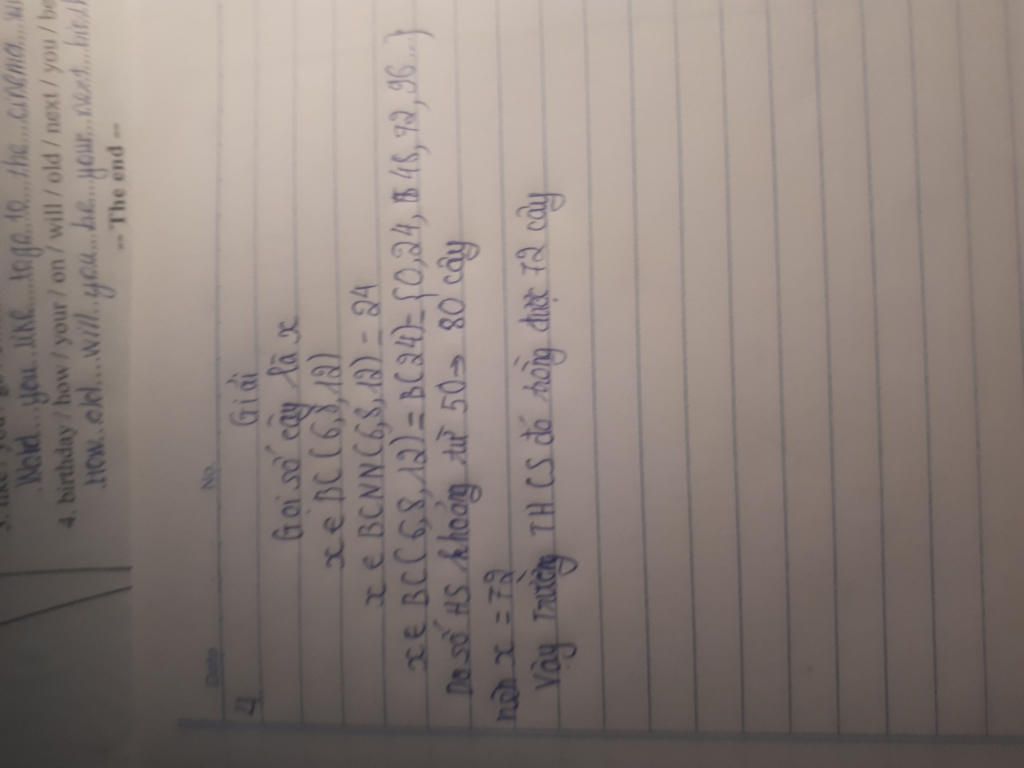 Neid...you...like...togo...to...the...cinema...
4. birthday / how / your / on / will / old / next / you / be
How...old...will...you...be...your...next...
-- The end --
Date No.
4 Giải
Gọi số cây là x
x ∈ BC(6,8,12)
x ∈ BCNN(6,8,12) = 24
x ∈ BC(6,8,12) = B(24) = {0,24,48,72,96...}
Do số HS khoảng từ 50 → 80 cây
nên x = 72
Vậy Trường THCS đó trồng được 72 cây